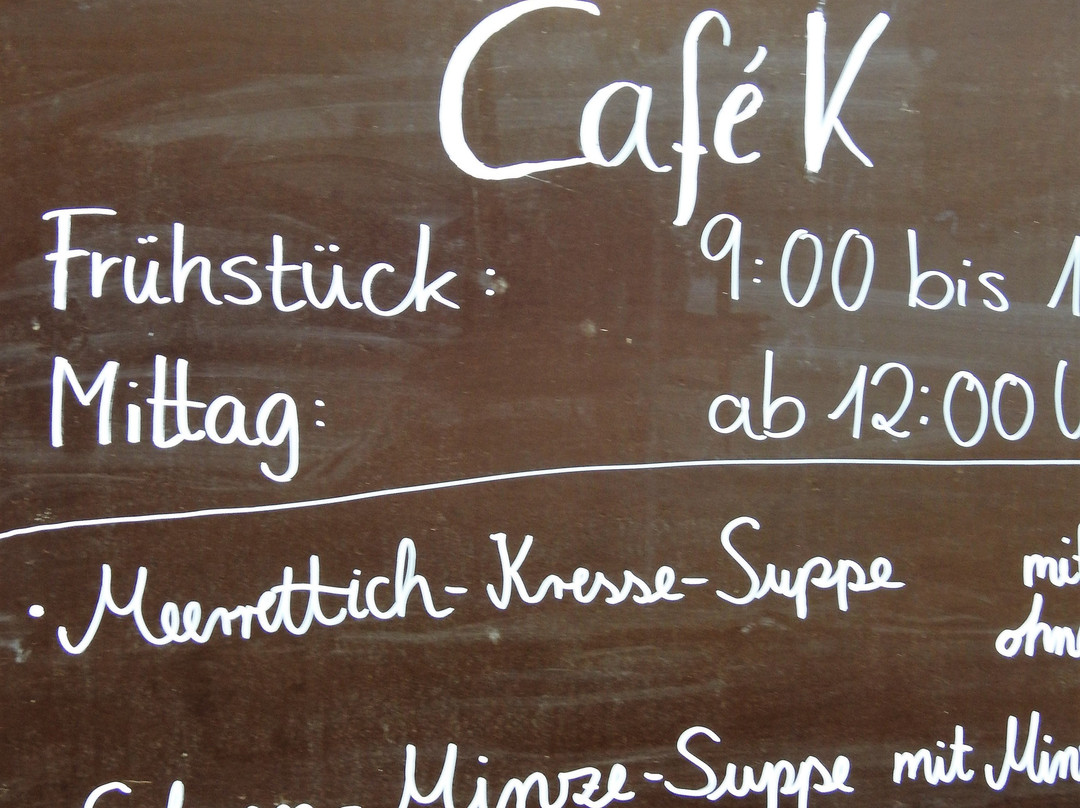 Café K
Frühstück: 9:00 bis
Mittag: ab 12:00
• Meerrettich-Kresse-Suppe mit
ohne
Minze-Suppe mit